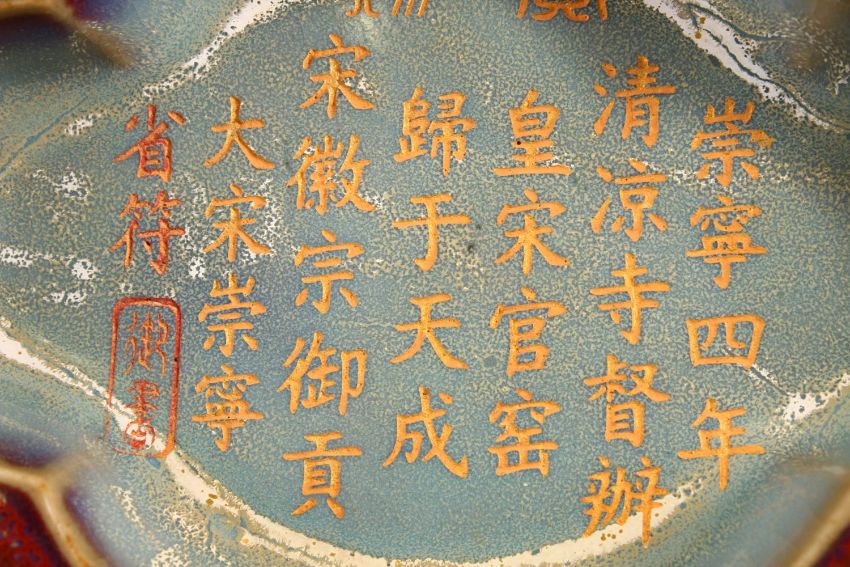 崇寧四年
清凉寺督辦
皇宋官窑
歸于天成
宋徽宗御貢
大宋崇寧
省符
御書